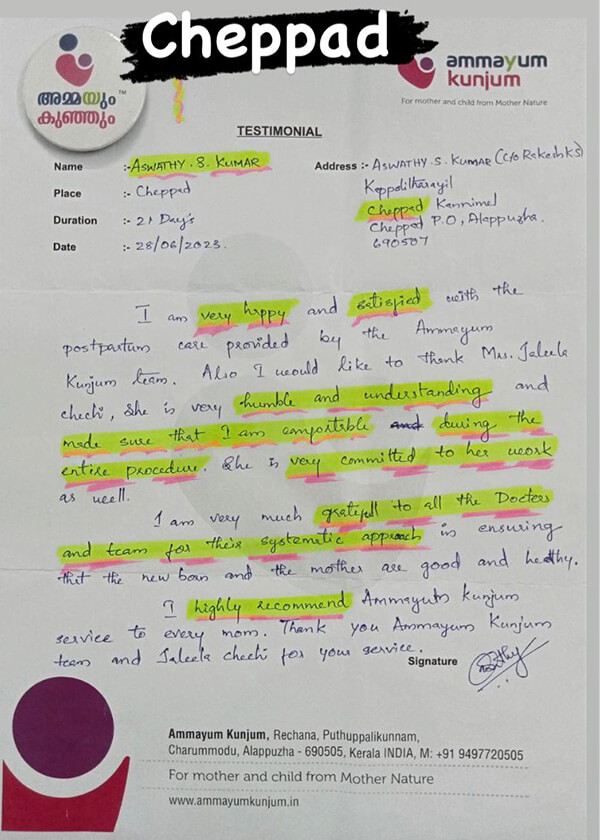 Cheppad
അമ്മയും™
കുഞ്ഞും
ammayum
kunjum
For mother and child from Mother Nature
TESTIMONIAL
Name :- ASWATHY. S. KUMAR
Place :- Cheppad
Duration :- 21 Day's
Date :- 28/06/2023.
Address :- ASWATHY. S. KUMAR (C/o Rakesh KS)
Cheppad Kannimel
Cheppad P.O, Alappuzha.
690507
I am very happy and satisfied with the
postpartum care provided by the Ammayum
Kunjum team. Also I would like to thank Mrs. Jaleela
chechi, She is very humble and understanding and
made sure that I am comfortable and during the
entire procedure. She is very committed to her work
as well.
I am very much gratefull to all the Docters
and team for their systematic approach in ensuring
that the new born and the mother are good and healthy.
I highly recommend Ammayum Kunjum
service to every mom. Thank you Ammayum Kunjum
team and Jaleela chechi for your service.
Signature
Ammayum Kunjum, Rechana, Puthuppalikunnam,
Charummodu, Alappuzha - 690505, Kerala INDIA, M: +91 9497720505
For mother and child from Mother Nature
www.ammayumkunjum.in